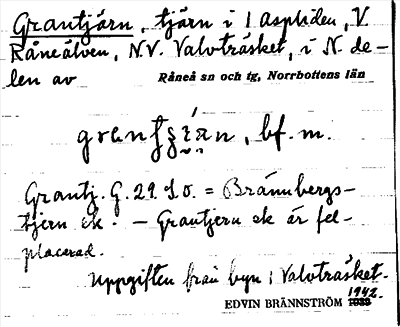 Grantjärn, tjärn i 1 Aspliden, V.
Råneälven, N.V. Valvträsket, i N. de-
len av Råneå sn och tg, Norrbottens län
bf. m.
Grantj. G. 29. S.O. = Brännbergs-
tjern ek. – Grantjern ek är fel-
placerad.
Uppgiften från byn i Valvträsket.
1942.
EDVIN BRÄNNSTRÖM